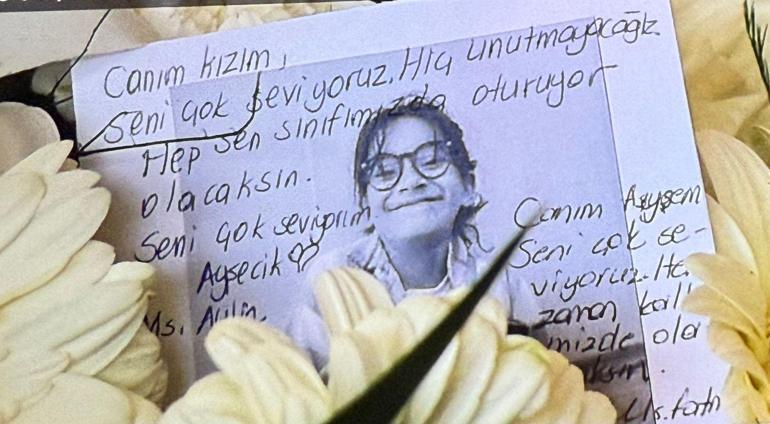 Canım kızım,
Seni çok seviyoruz. Hiç unutmayacağız
Hep sen sınıfımızda oturuyor
olacaksın.
Seni çok seviyorum
Ayşecik ♡
Ms. Aylin
Canım Ayşem
Seni çok se-
viyoruz. He
zaman kal
mizde ola
ksın.